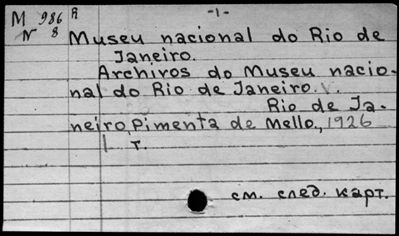 М 986 R -1-
N 8
Museu nacional do Rio de
Janeiro.
Archivos do Museu nacio-
nal do Rio de Janeiro. v.
Rio de Ja-
neiro, Pimenta de Mello, 1926
т.
см. след. карт.